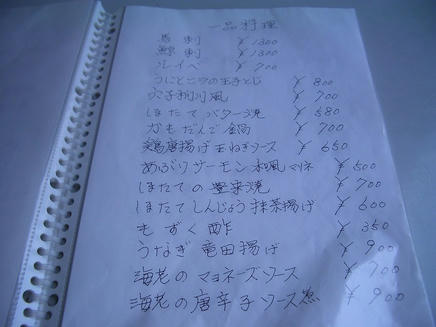 一品料理
馬刺 ¥1300
鯨刺 ¥1300
ルイベ ¥700
うにとニラの玉子とじ ¥800
穴子柳川風 ¥700
ほたてバター焼 ¥580
かもだんご鍋 ¥700
鶏唐揚げ玉ねぎソース ¥650
あぶりサーモン和風マリネ ¥500
ほたての 焼 ¥700
ほたてしんじょう抹茶揚げ ¥600
もずく酢 ¥350
うなぎ竜田揚げ ¥900
海老のマヨネーズソース ¥700
海老の唐辛子ソース煮 ¥900